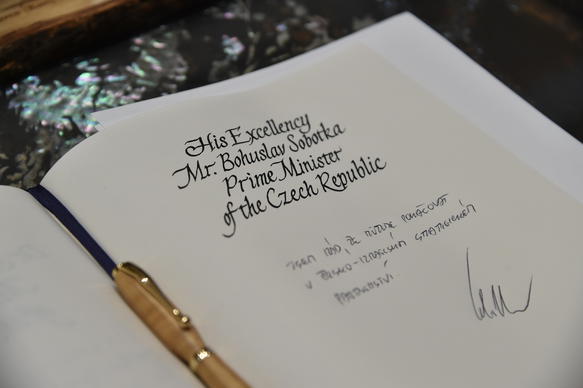 His Excellency
Mr. Bohuslav Sobotka
Prime Minister
of the Czech Republic
JSEM RÁD, ŽE MŮŽEME POKRAČOVAT
V ČESKO-IZRAELSKÉM STRATEGICKÉM
PARTNERSTVÍ